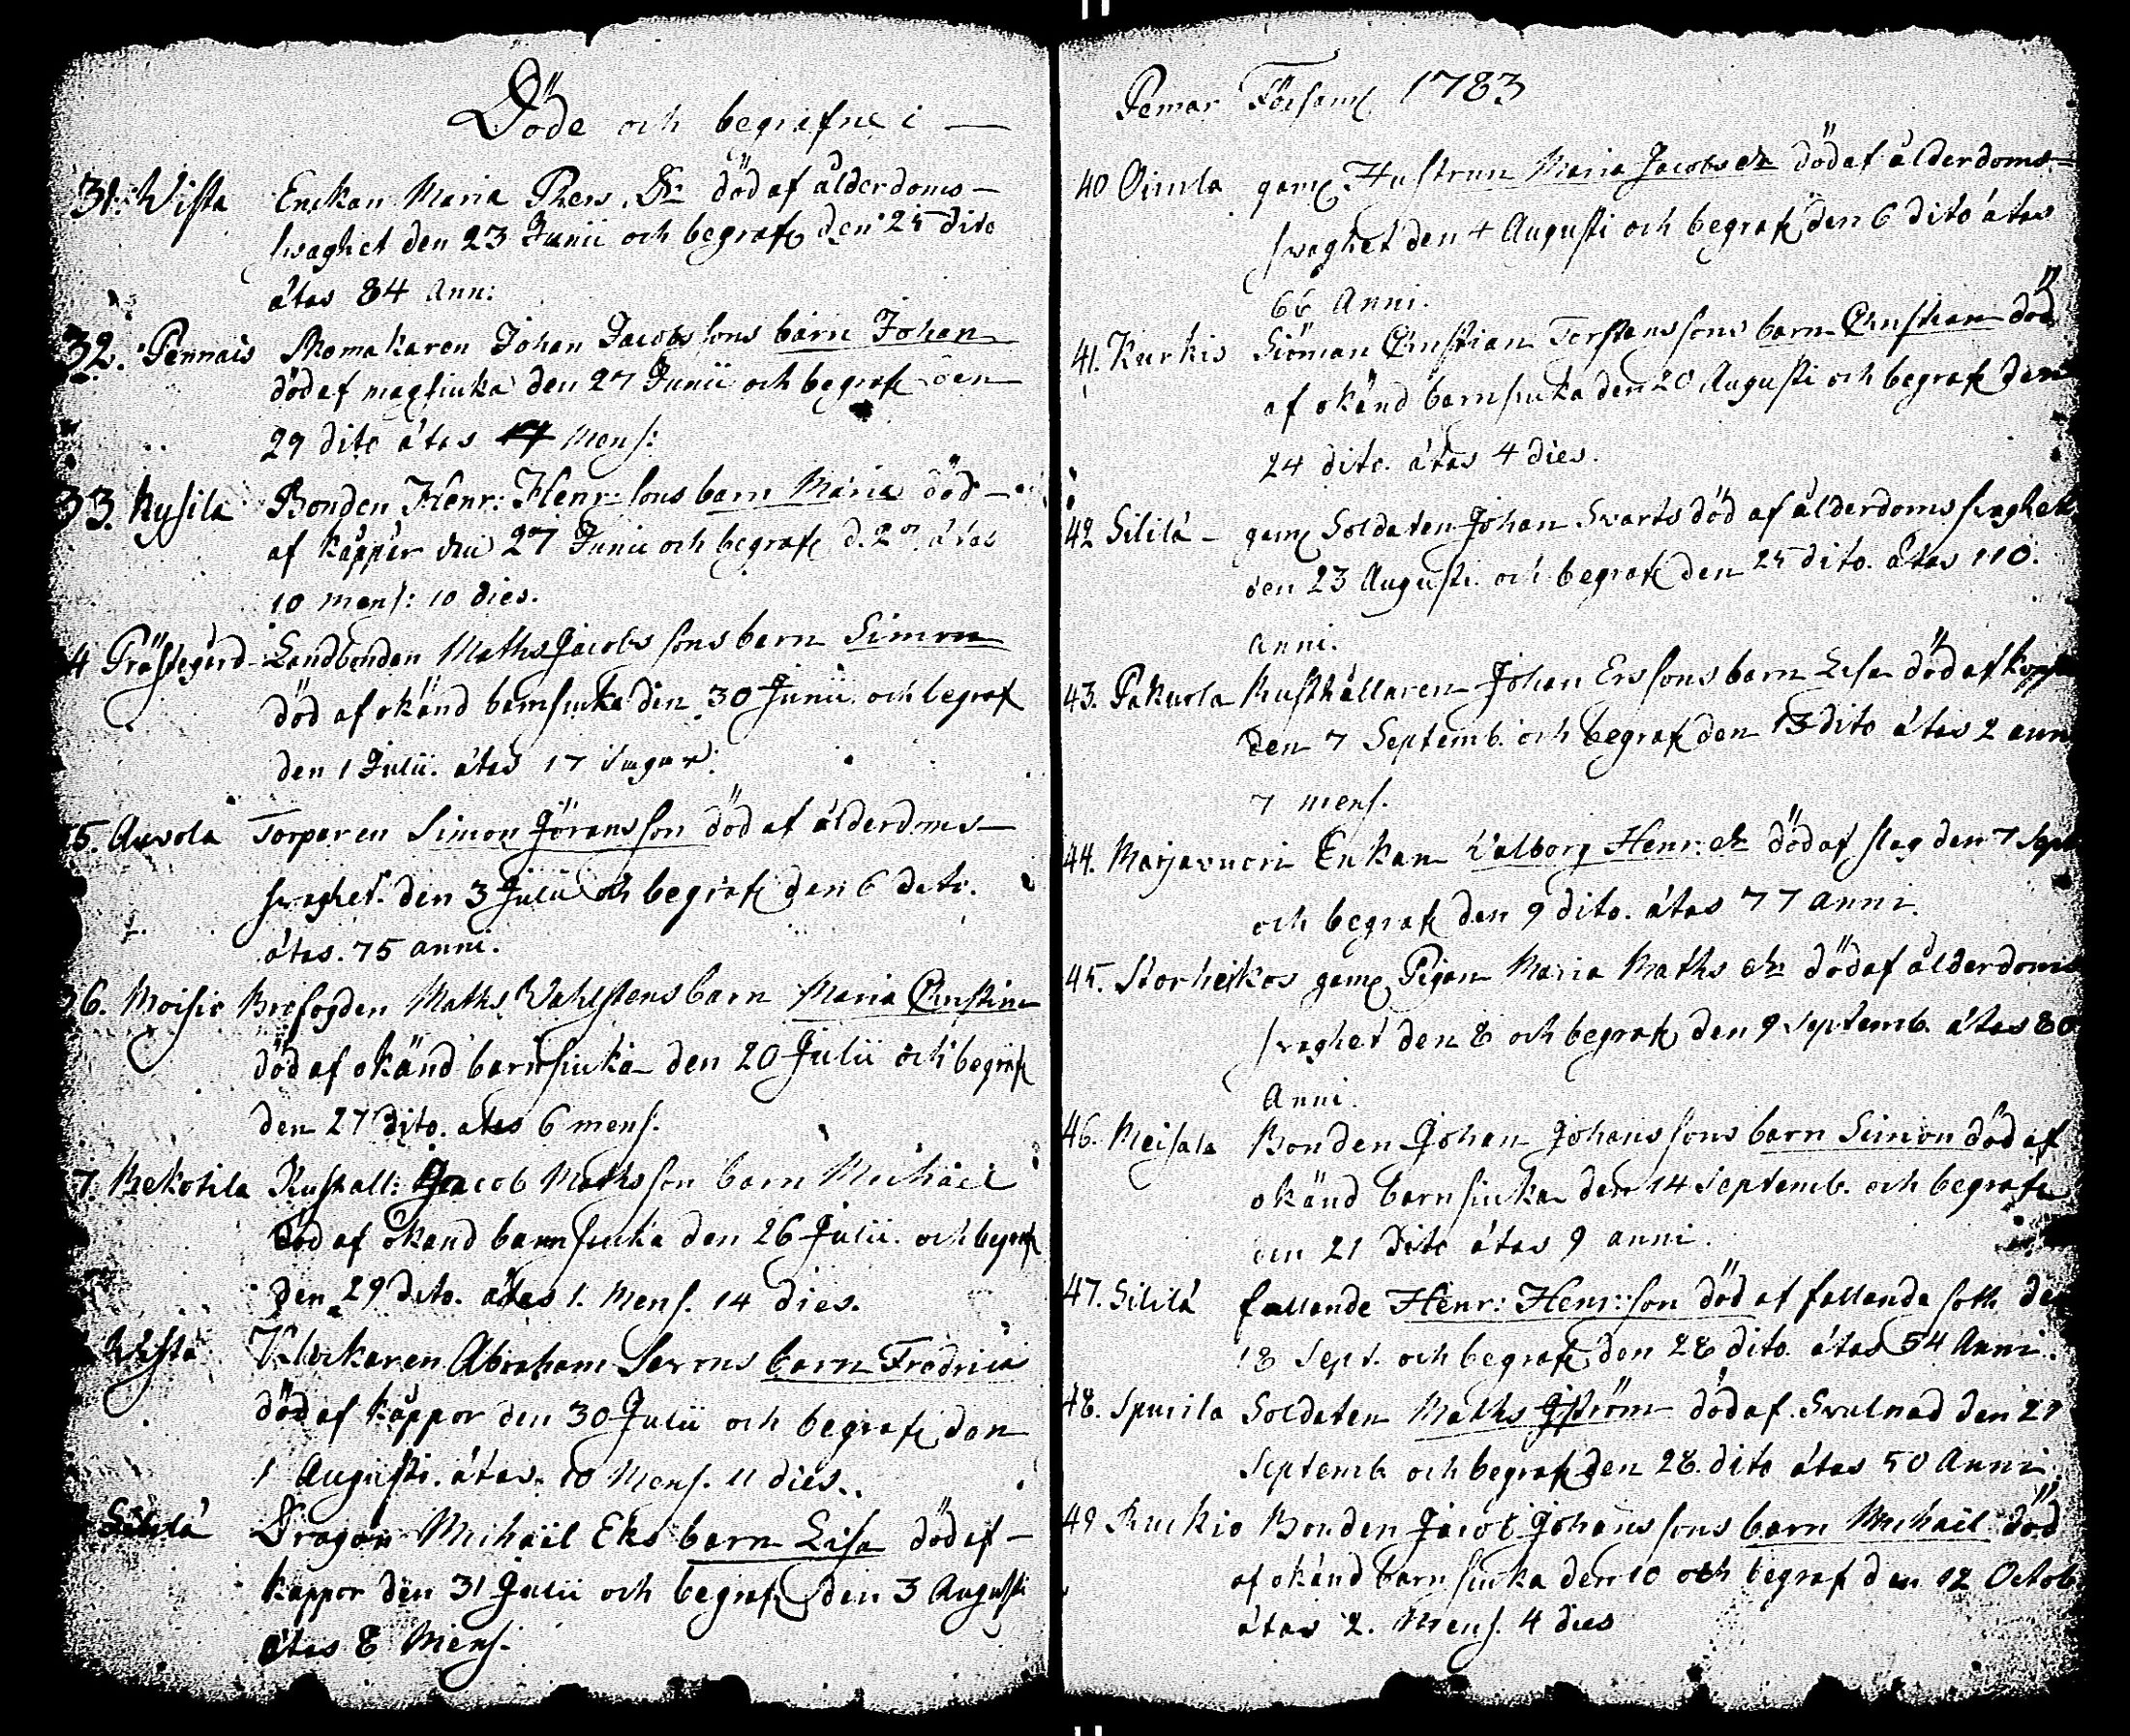 Döde och begrafne i —
31. Wista Enckan Maria Phers Dr död af ålderdoms-
swaghet den 23 Junii och begrafn den 25 dito
ätas 84 Ann:
32. Pennais Skomakaren Johan Jacobs sons barn Johan
död af magsiuka den 27 Junii och begrafn den
29 dito ätas Mens:
33. Rysila Bonden Henr: Henr: sons barn Maria död —
af kåppår den 27 Junii och begrafn d. 29. ätas
10 mens: 10 dies.
4 Prästegård Landbonden Maths Jacobs sons barn Simon
död af okänd barnsiuka den 30 Junii och begrafn
den 1 Julii. ätas 17
5. Auvola Torparen Simon Göransson död af ålderdoms-
swaghet den 3 Julii och begrafn den 6 dito.
ätas. 75 anni.
36. Moisio Brofogden Maths Wahlstens barn Maria Christina
död af okänd barnsiuka den 20 Julii och begrafn
den 27 dito. ätas 6 mens.
7. Rekotila Rusthåll: Jacob Mathsson barn Michael
död af okand barnsiuka den 26 Julii. och begrafn
den 29 dito. ätas 1. Mens. 14 dies.
Wista Klockaren Abraham barn Fredrica
död af kåppor den 30 Julii och begrafn den
1 Augusti. ätas. 10 Mens. 11 dies.
Sililä Dragon Michaël Eks barn Lisa död af —
kappor den 31 Julii och begrafn den 3 Augusti
ätas 8 Mens.
Pemar Församl 1783
40 Oinila gaml Hustrun Maria Jacobs dr död af ålderdoms-
swaghet den 4 Augusti och begrafn den 6 dito ätas
66 Anni.
41. Kurkis Sioman Christian Torstenssons barn Christian död
af okänd barnsiuka den 20 Augusti och begrafn den
24 dito. ätas 4 dies.
42 Sililä - gaml Soldaten Johan Svarts död af ålderdoms swaghet
den 23 Augusti. och begrafn den 25 dito. ätas 110.
anni.
43. Pakurla Rusthållaren Johan Erssons barn Lisa död af koppor
den 7 Septemb. och begrafn den 13 dito ätas 2 ann
7 mens.
44. Marjavuori Enkan Valborg Henr: dr död af slag den 7 Sept
och begrafn den 9 dito. ätas 77 anni.
45. Storheikos gaml Pigan Maria Maths dr död af ålderdoms
swaghet den 8 och begrafn den 9 septemb. ätas 80
Anni.
46. Meisala Bonden Johan Johans sons barn Simon död af
okänd barnsiuka den 14 septemb. och begrafn
den 21 dito ätas 9 anni.
47. Sililä fallande Henr: Henr: son död af fallande soth den
18 Sept. och begrafn den 28 dito. ätas 54 Anni.
48. Spurila Soldaten Maths död af Svulnad den 27
Septemb och begrafn den 28. dito ätas 50 Anni.
49 Ruckio Bonden Jacob Johans sons barn Michaël död
af okänd barnsiuka den 10 och begraf den 12 Octob.
ätas 2. Mens. 4 dies